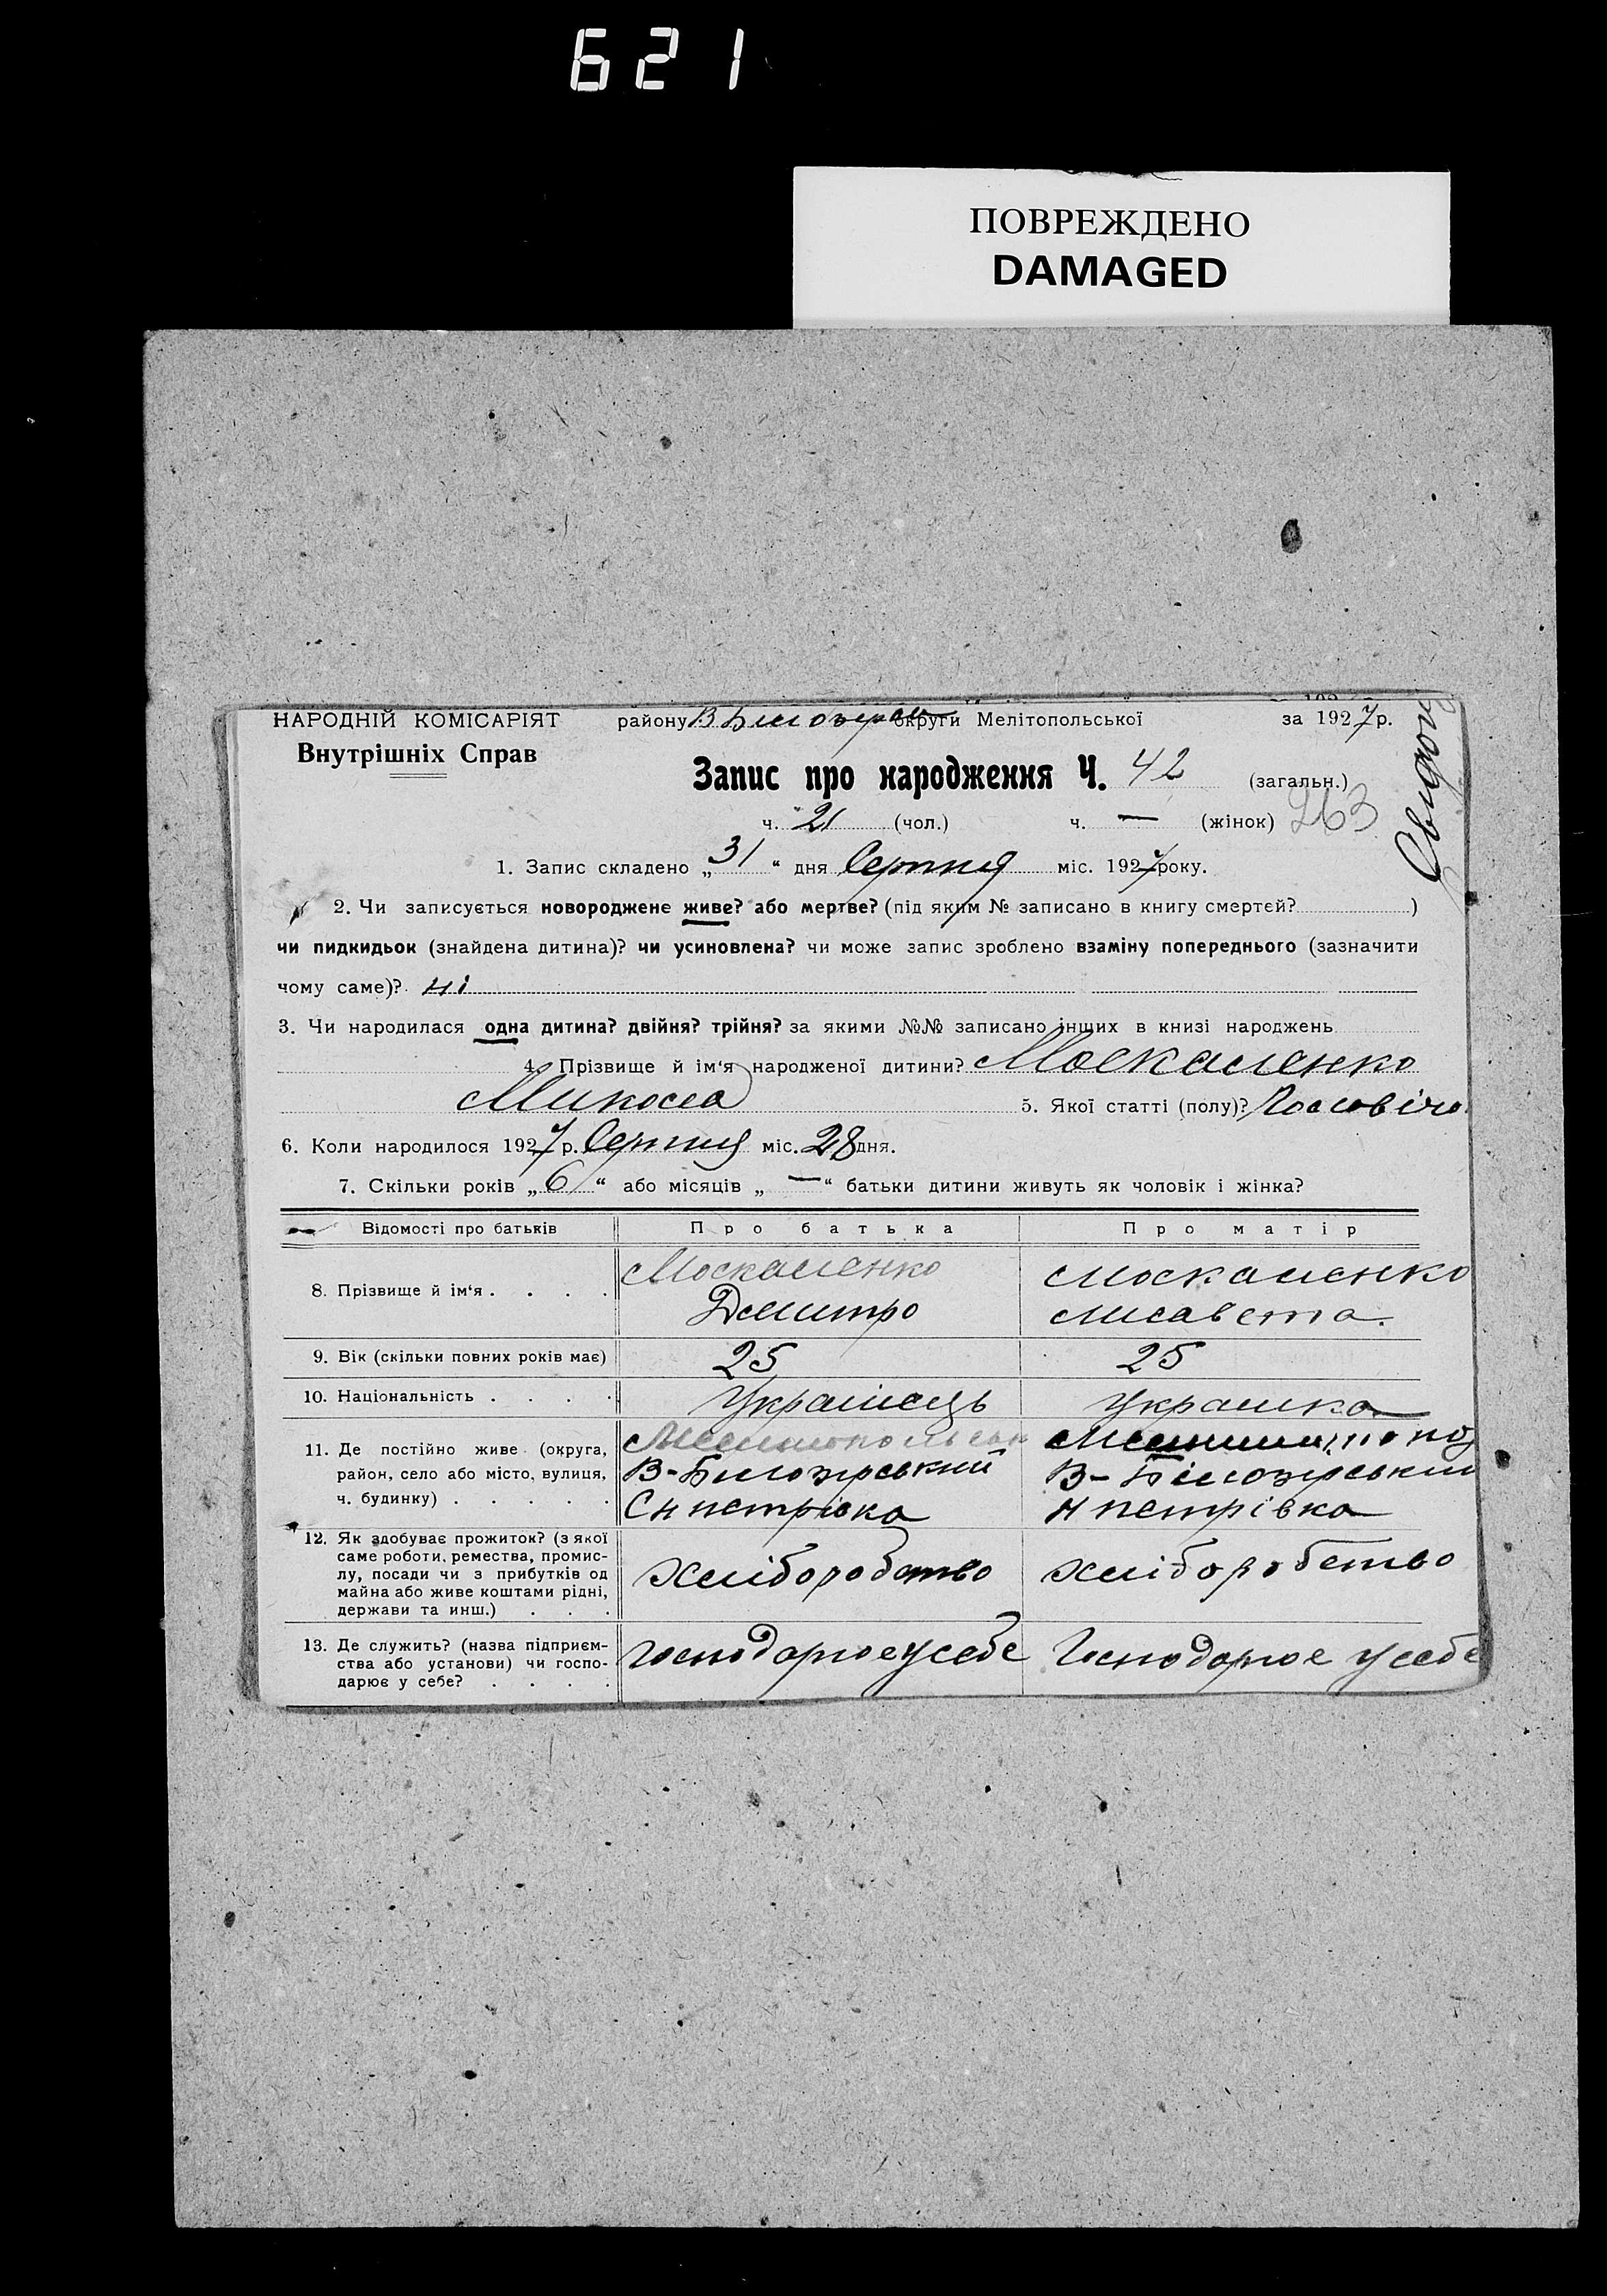 621
ПОВРЕЖДЕНО
DAMAGED
НАРОДНІЙ КОМІСАРІЯТ
Внутрішніх Справ
району В Билозірськ округи Мелітопольської за 1927 р.
Запис про народження Ч. 42 (загальн.)
263
ч. 21 (чол.) ч. — (жінок)
1. Запис складено „31“ дня Серпня міс. 1927 року.
2. Чи записується новороджене живе? або мертве? (під яким № записано в книгу смертей? )
чи пидкидьок (знайдена дитина)? чи усиновлена? чи може запис зроблено взаміну попереднього (зазначити
чому саме)? ні
3. Чи народилася одна дитина? двійня? трійня? за якими №№ записано інших в книзі народжень
4. Прізвище й ім‘я народженої дитини? Москаленко
Микола 5. Якої статті (полу)? Чоловічо
6. Коли народилося 1927 р. Серпня міс. 28 дня.
7. Скільки років „6“ або місяців „—“ батьки дитини живуть як чоловік і жінка?
Відомості про батьків Про батька Про матір
8. Прізвище й ім‘я . . . . Москаленко Дмитро Москаленко Лисавета.
9. Вік (скільки повних років має) 25 25
10. Національність . . . . Українець Украінка
11. Де постійно живе (округа, Мелитопольськ Мелитопо
район, село або місто, вулиця, В-Билозірський В-Білозірський
ч. будинку) . . . . . С Н петрівка Н петрівка
12. Як здобуває прожиток? (з якої
саме роботи, ремества, промис-
лу, посади чи з прибутків од хліборобство хліборобство
майна або живе коштами рідні,
держави та инш.) . . .
13. Де служить? (назва підприєм-
ства або установи) чи госпо- Господарює у себе Господарює у себе
дарює у себе? . . . .